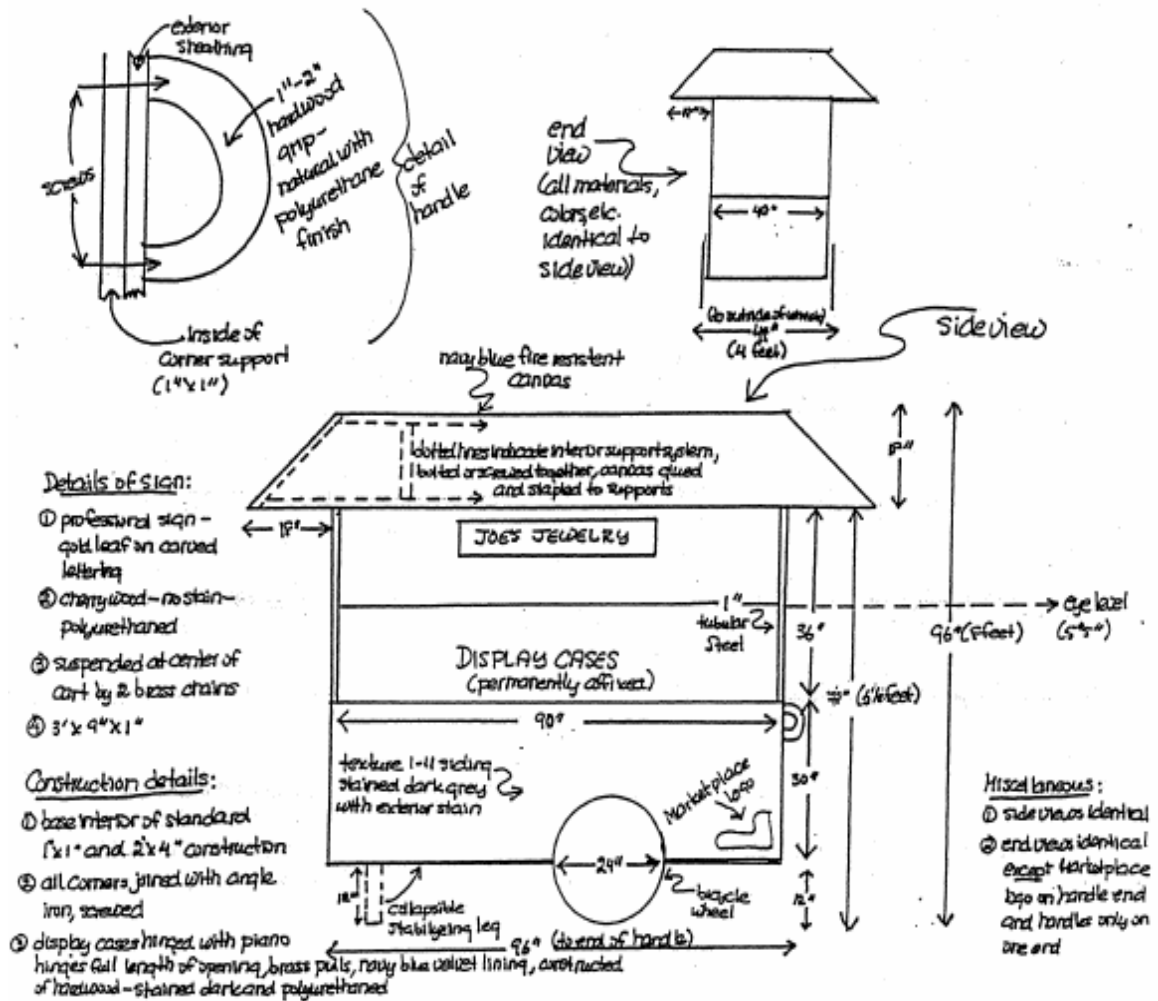 exterior
sheathing
1"-2"
hardwood
grip-
natural with
polyurethane
finish
screws
detail
of
handle
Inside of
corner support
(1"x1")
end
view
(all materials,
colors, etc.
identical to
side view)
40"
(to outside of wheels)
(4 feet)
side view
navy blue fire resistent
canvas
dotted lines indicate interior support system,
bolted or screwed together, canvas glued
and stapled to supports
18"
18"
JOE'S JEWELRY
1"
tubular
steel
36"
eye level
(5'5")
96" (8 feet)
(5½ feet)
DISPLAY CASES
(permanently affixed)
90"
texture 1-11 siding
stained dark grey
with exterior stain
Marketplace
logo
30"
24"
bicycle
wheel
12"
12"
collapsible
stabilyzing leg
96" (to end of handle)
Details of sign:
① professional sign-
gold leaf on carved
lettering
② cherry wood-no stain-
polyurethaned
③ suspended at center of
cart by 2 brass chains
④ 3'x9"x1"
Construction details:
① base interior of standard
1"x1" and 2"x4" construction
② all corners joined with angle
iron, screwed
③ display cases hinged with piano
hinges full length of opening, brass pulls, navy blue velvet lining, constructed
of hardwood-stained dark and polyurethaned
Miscellaneous:
① side views identical
② end views identical
except Marketplace
logo on handle end
and handles only on
one end